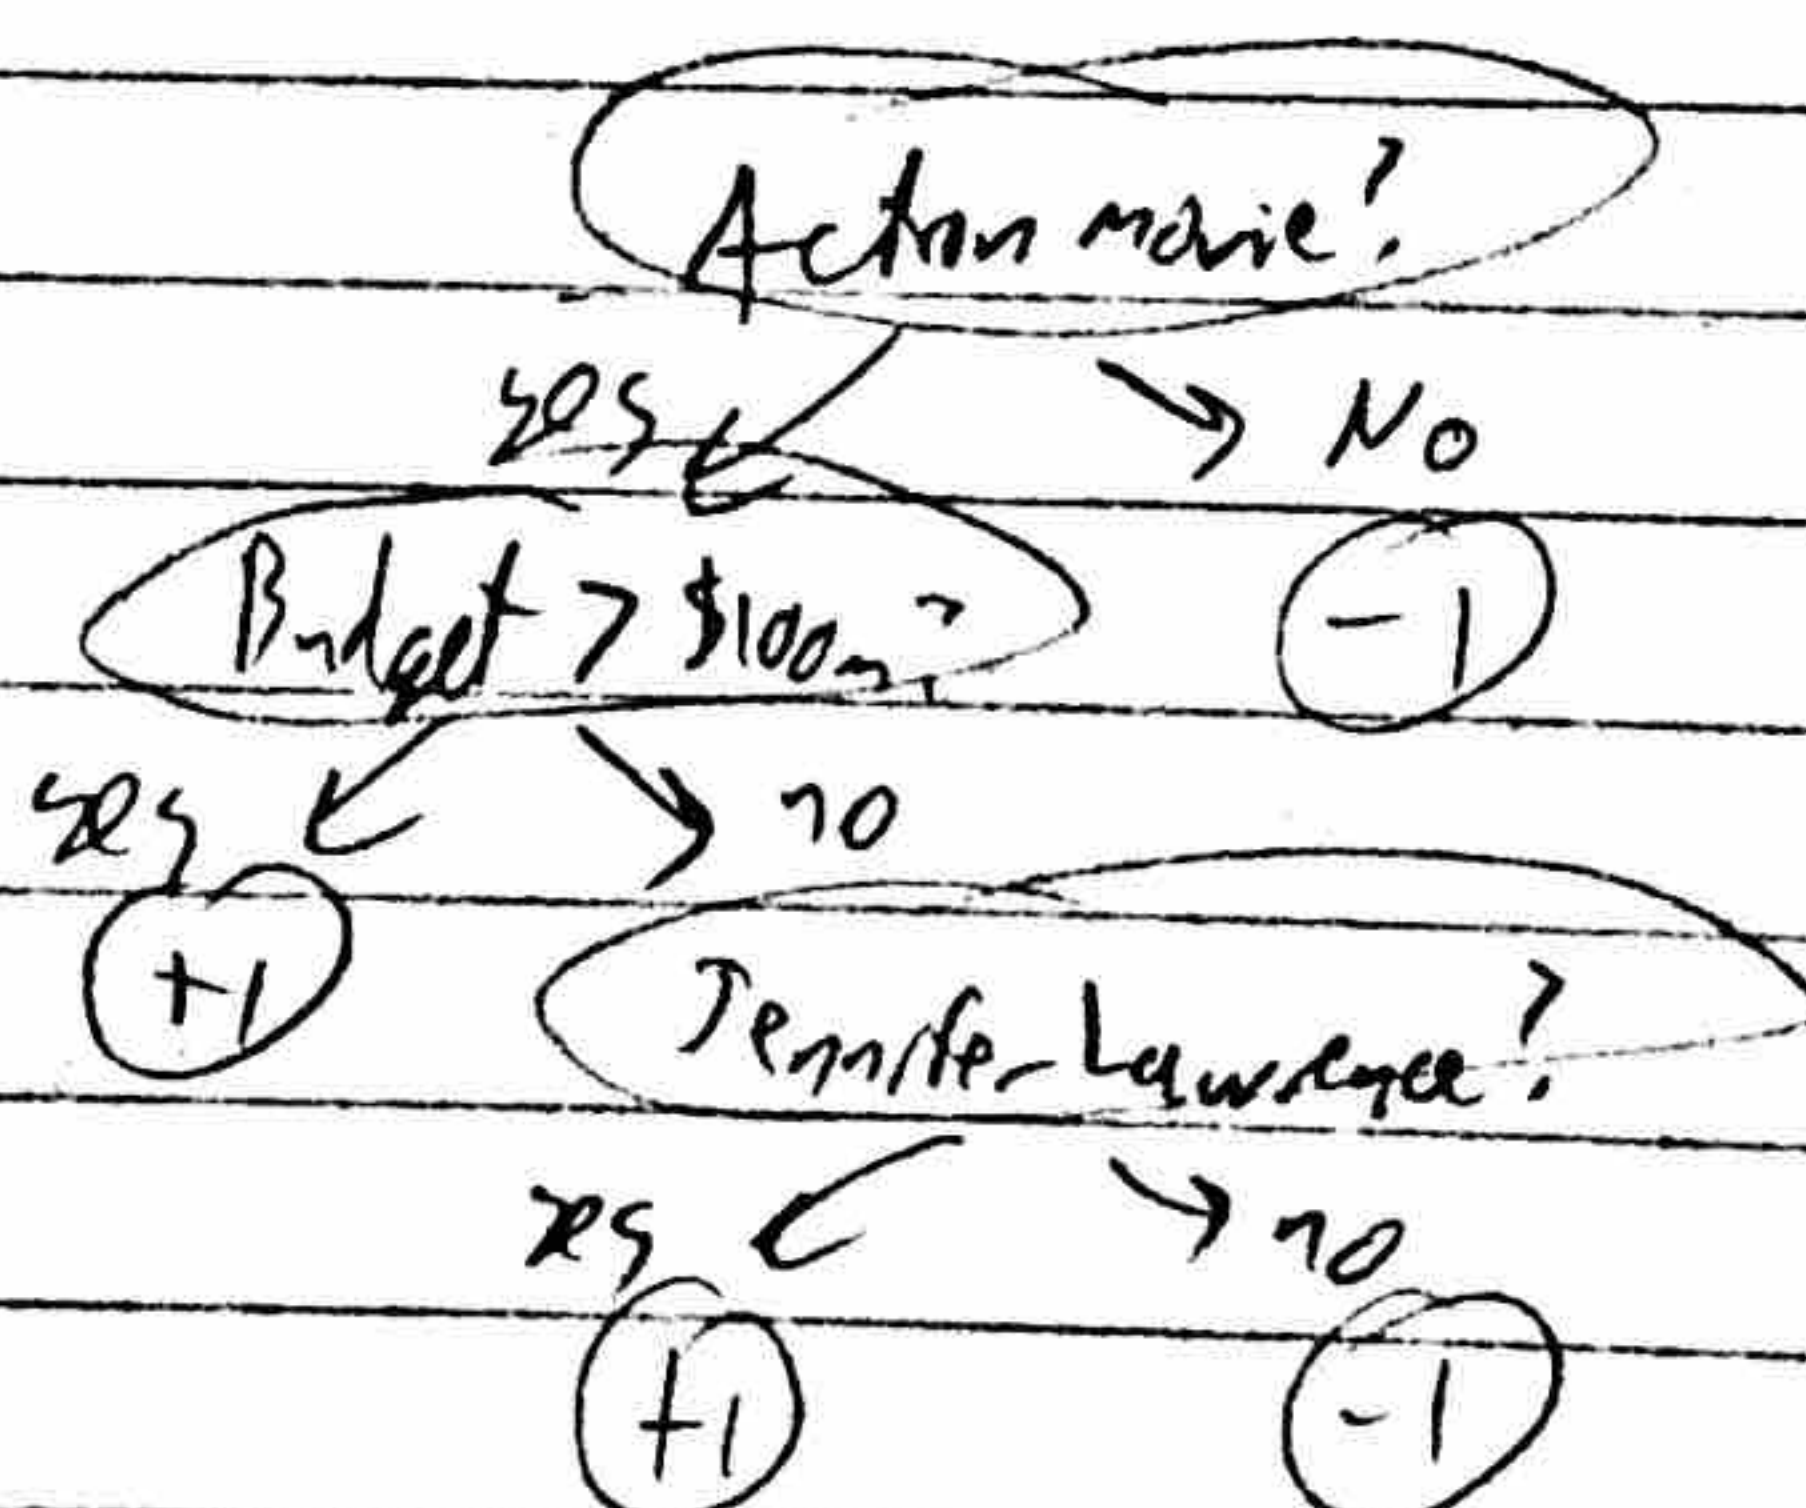 Action movie?
yes No
Budget > $100m?
-1
yes no
+1
Jennifer Lawrence?
yes no
+1 -1